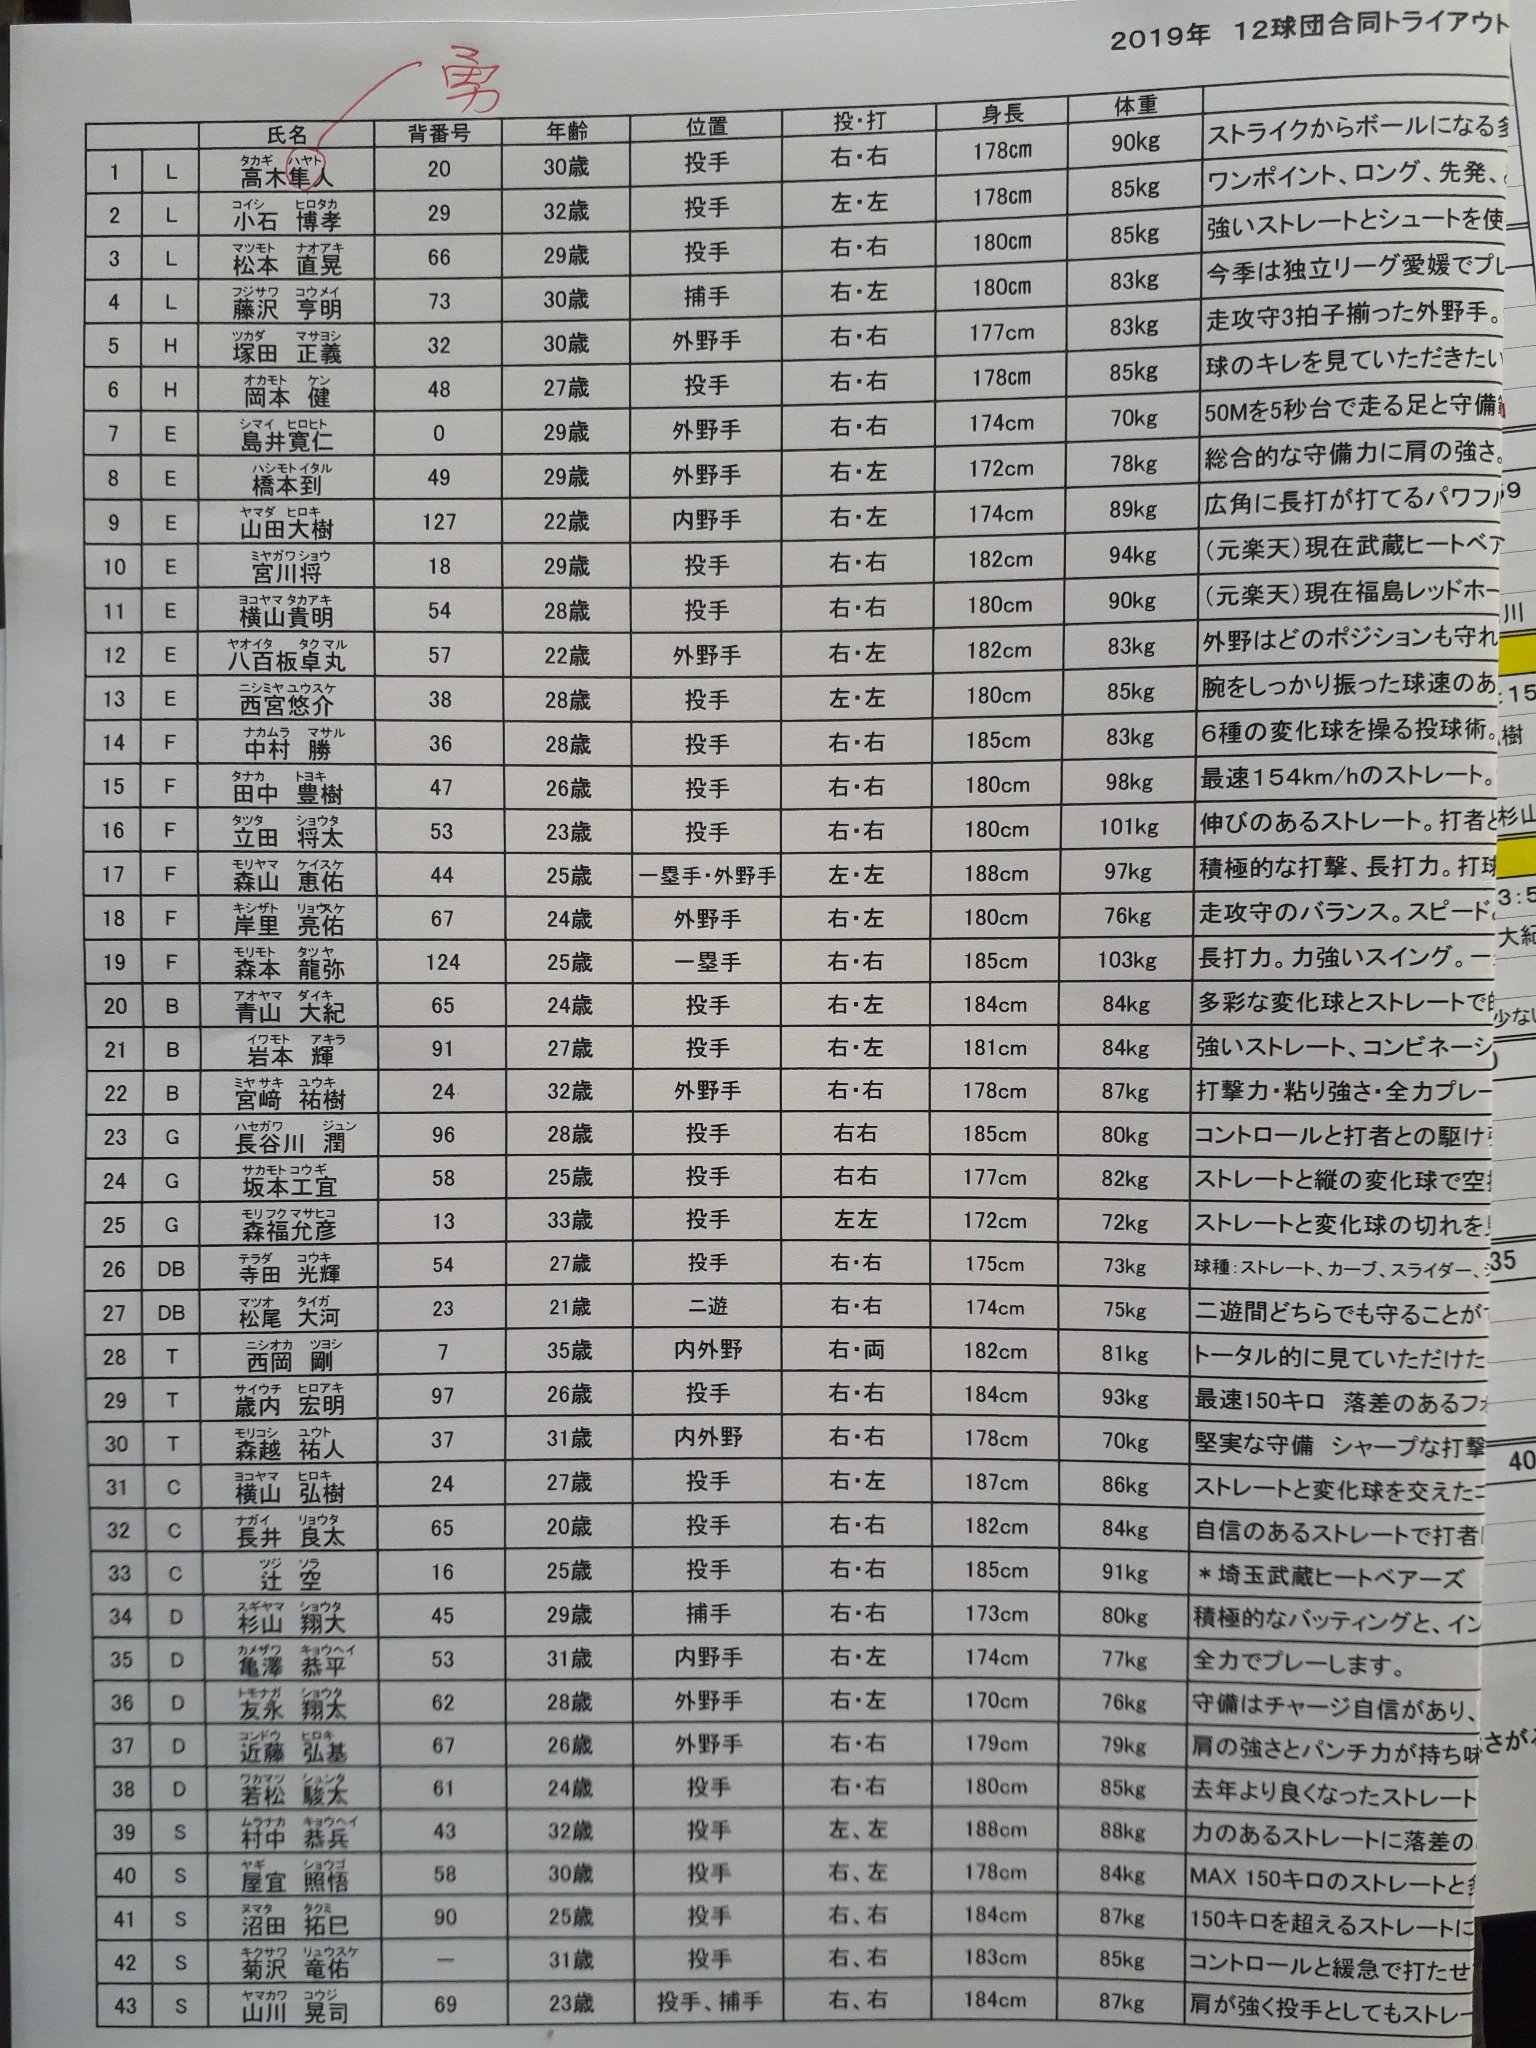 2019年　12球団合同トライアウト
勇
氏名 背番号 年齢 位置 投・打 身長 体重
1 L タカギ ハヤト 高木隼人 20 30歳 投手 右・右 178cm 90kg ストライクからボールになる
2 L コイシ ヒロタカ 小石 博孝 29 32歳 投手 左・左 178cm 85kg ワンポイント、ロング、先発、
3 L マツモト ナオアキ 松本 直晃 66 29歳 投手 右・右 180cm 85kg 強いストレートとシュートを使
4 L フジサワ コウメイ 藤沢 亨明 73 30歳 捕手 右・左 180cm 83kg 今季は独立リーグ愛媛でプレ
5 H ツカダ マサヨシ 塚田 正義 32 30歳 外野手 右・右 177cm 83kg 走攻守3拍子揃った外野手。
6 H オカモト ケン 岡本 健 48 27歳 投手 右・右 178cm 85kg 球のキレを見ていただきたい
7 E シマイ ヒロヒト 島井寛仁 0 29歳 外野手 右・右 174cm 70kg 50Mを5秒台で走る足と守備
8 E ハシモトイタル 橋本到 49 29歳 外野手 右・左 172cm 78kg 総合的な守備力に肩の強さ。
9 E ヤマダ ヒロキ 山田大樹 127 22歳 内野手 右・左 174cm 89kg 広角に長打が打てるパワフル
10 E ミヤガワショウ 宮川将 18 29歳 投手 右・右 182cm 94kg （元楽天）現在武蔵ヒートベア
11 E ヨコヤマタカアキ 横山貴明 54 28歳 投手 右・右 180cm 90kg （元楽天）現在福島レッドホー
12 E ヤオイタ タクマル 八百板卓丸 57 22歳 外野手 右・左 182cm 83kg 外野はどのポジションも守れ
13 E ニシミヤユウスケ 西宮悠介 38 28歳 投手 左・左 180cm 85kg 腕をしっかり振った球速のあ
14 F ナカムラ マサル 中村 勝 36 28歳 投手 右・右 185cm 83kg 6種の変化球を操る投球術。
15 F タナカ トヨキ 田中 豊樹 47 26歳 投手 右・右 180cm 98kg 最速154km/hのストレート。
16 F タツタ ショウタ 立田 将太 53 23歳 投手 右・右 180cm 101kg 伸びのあるストレート。打者と
17 F モリヤマ ケイスケ 森山 恵佑 44 25歳 一塁手・外野手 左・左 188cm 97kg 積極的な打撃、長打力。打球
18 F キシザト リョウスケ 岸里 亮佑 67 24歳 外野手 右・左 180cm 76kg 走攻守のバランス。スピード
19 F モリモト タツヤ 森本 龍弥 124 25歳 一塁手 右・右 185cm 103kg 長打力。力強いスイング。一
20 B アオヤマ ダイキ 青山 大紀 65 24歳 投手 右・左 184cm 84kg 多彩な変化球とストレートで
21 B イワモト アキラ 岩本 輝 91 27歳 投手 右・左 181cm 84kg 強いストレート、コンビネーシ
22 B ミヤサキ ユウキ 宮﨑 祐樹 24 32歳 外野手 右・右 178cm 87kg 打撃力・粘り強さ・全力プレー
23 G ハセガワ ジュン 長谷川 潤 96 28歳 投手 右右 185cm 80kg コントロールと打者との駆け
24 G サカモトコウギ 坂本工宜 58 25歳 投手 右右 177cm 82kg ストレートと縦の変化球で空
25 G モリフクマサヒコ 森福允彦 13 33歳 投手 左左 172cm 72kg ストレートと変化球の切れを
26 DB テラダ コウキ 寺田 光輝 54 27歳 投手 右・右 175cm 73kg 球種：ストレート、カーブ、スライダー、
27 DB マツオ タイガ 松尾 大河 23 21歳 二遊 右・右 174cm 75kg 二遊間どちらでも守ることが
28 T ニシオカ ツヨシ 西岡 剛 7 35歳 内外野 右・両 182cm 81kg トータル的に見ていただけた
29 T サイウチ ヒロアキ 歳内 宏明 97 26歳 投手 右・右 184cm 93kg 最速150キロ 落差のあるフォ
30 T モリコシ ユウト 森越 祐人 37 31歳 内外野 右・右 178cm 70kg 堅実な守備 シャープな打撃
31 C ヨコヤマ ヒロキ 横山 弘樹 24 27歳 投手 右・左 187cm 86kg ストレートと変化球を交えた
32 C ナガイ リョウタ 長井 良太 65 20歳 投手 右・右 182cm 84kg 自信のあるストレートで打者
33 C ツジ ソラ 辻 空 16 25歳 投手 右・右 185cm 91kg ＊埼玉武蔵ヒートベアーズ
34 D スギヤマ ショウタ 杉山 翔大 45 29歳 捕手 右・右 173cm 80kg 積極的なバッティングと、イン
35 D カメザワ キョウヘイ 亀澤 恭平 53 31歳 内野手 右・左 174cm 77kg 全力でプレーします。
36 D トモナガ ショウタ 友永 翔太 62 28歳 外野手 右・左 170cm 76kg 守備はチャージ自信があり、
37 D コンドウ ヒロキ 近藤 弘基 67 26歳 外野手 右・右 179cm 79kg 肩の強さとパンチ力が持ち味
38 D ワカマツ シュンタ 若松 駿太 61 24歳 投手 右・右 180cm 85kg 去年より良くなったストレート
39 S ムラナカ キョウヘイ 村中 恭兵 43 32歳 投手 左、左 188cm 88kg 力のあるストレートに落差の
40 S ヤギ ショウゴ 屋宜 照悟 58 30歳 投手 右、左 178cm 84kg MAX 150キロのストレートと
41 S ヌマタ タクミ 沼田 拓巳 90 25歳 投手 右、右 184cm 87kg 150キロを超えるストレートに
42 S キクサワ リュウスケ 菊沢 竜佑 － 31歳 投手 右、右 183cm 85kg コントロールと緩急で打たせ
43 S ヤマカワ コウジ 山川 晃司 69 23歳 投手、捕手 右、右 184cm 87kg 肩が強く投手としてもストレー
川
:15
樹
杉山
3:5
大紀
少ない
35
40
さがる